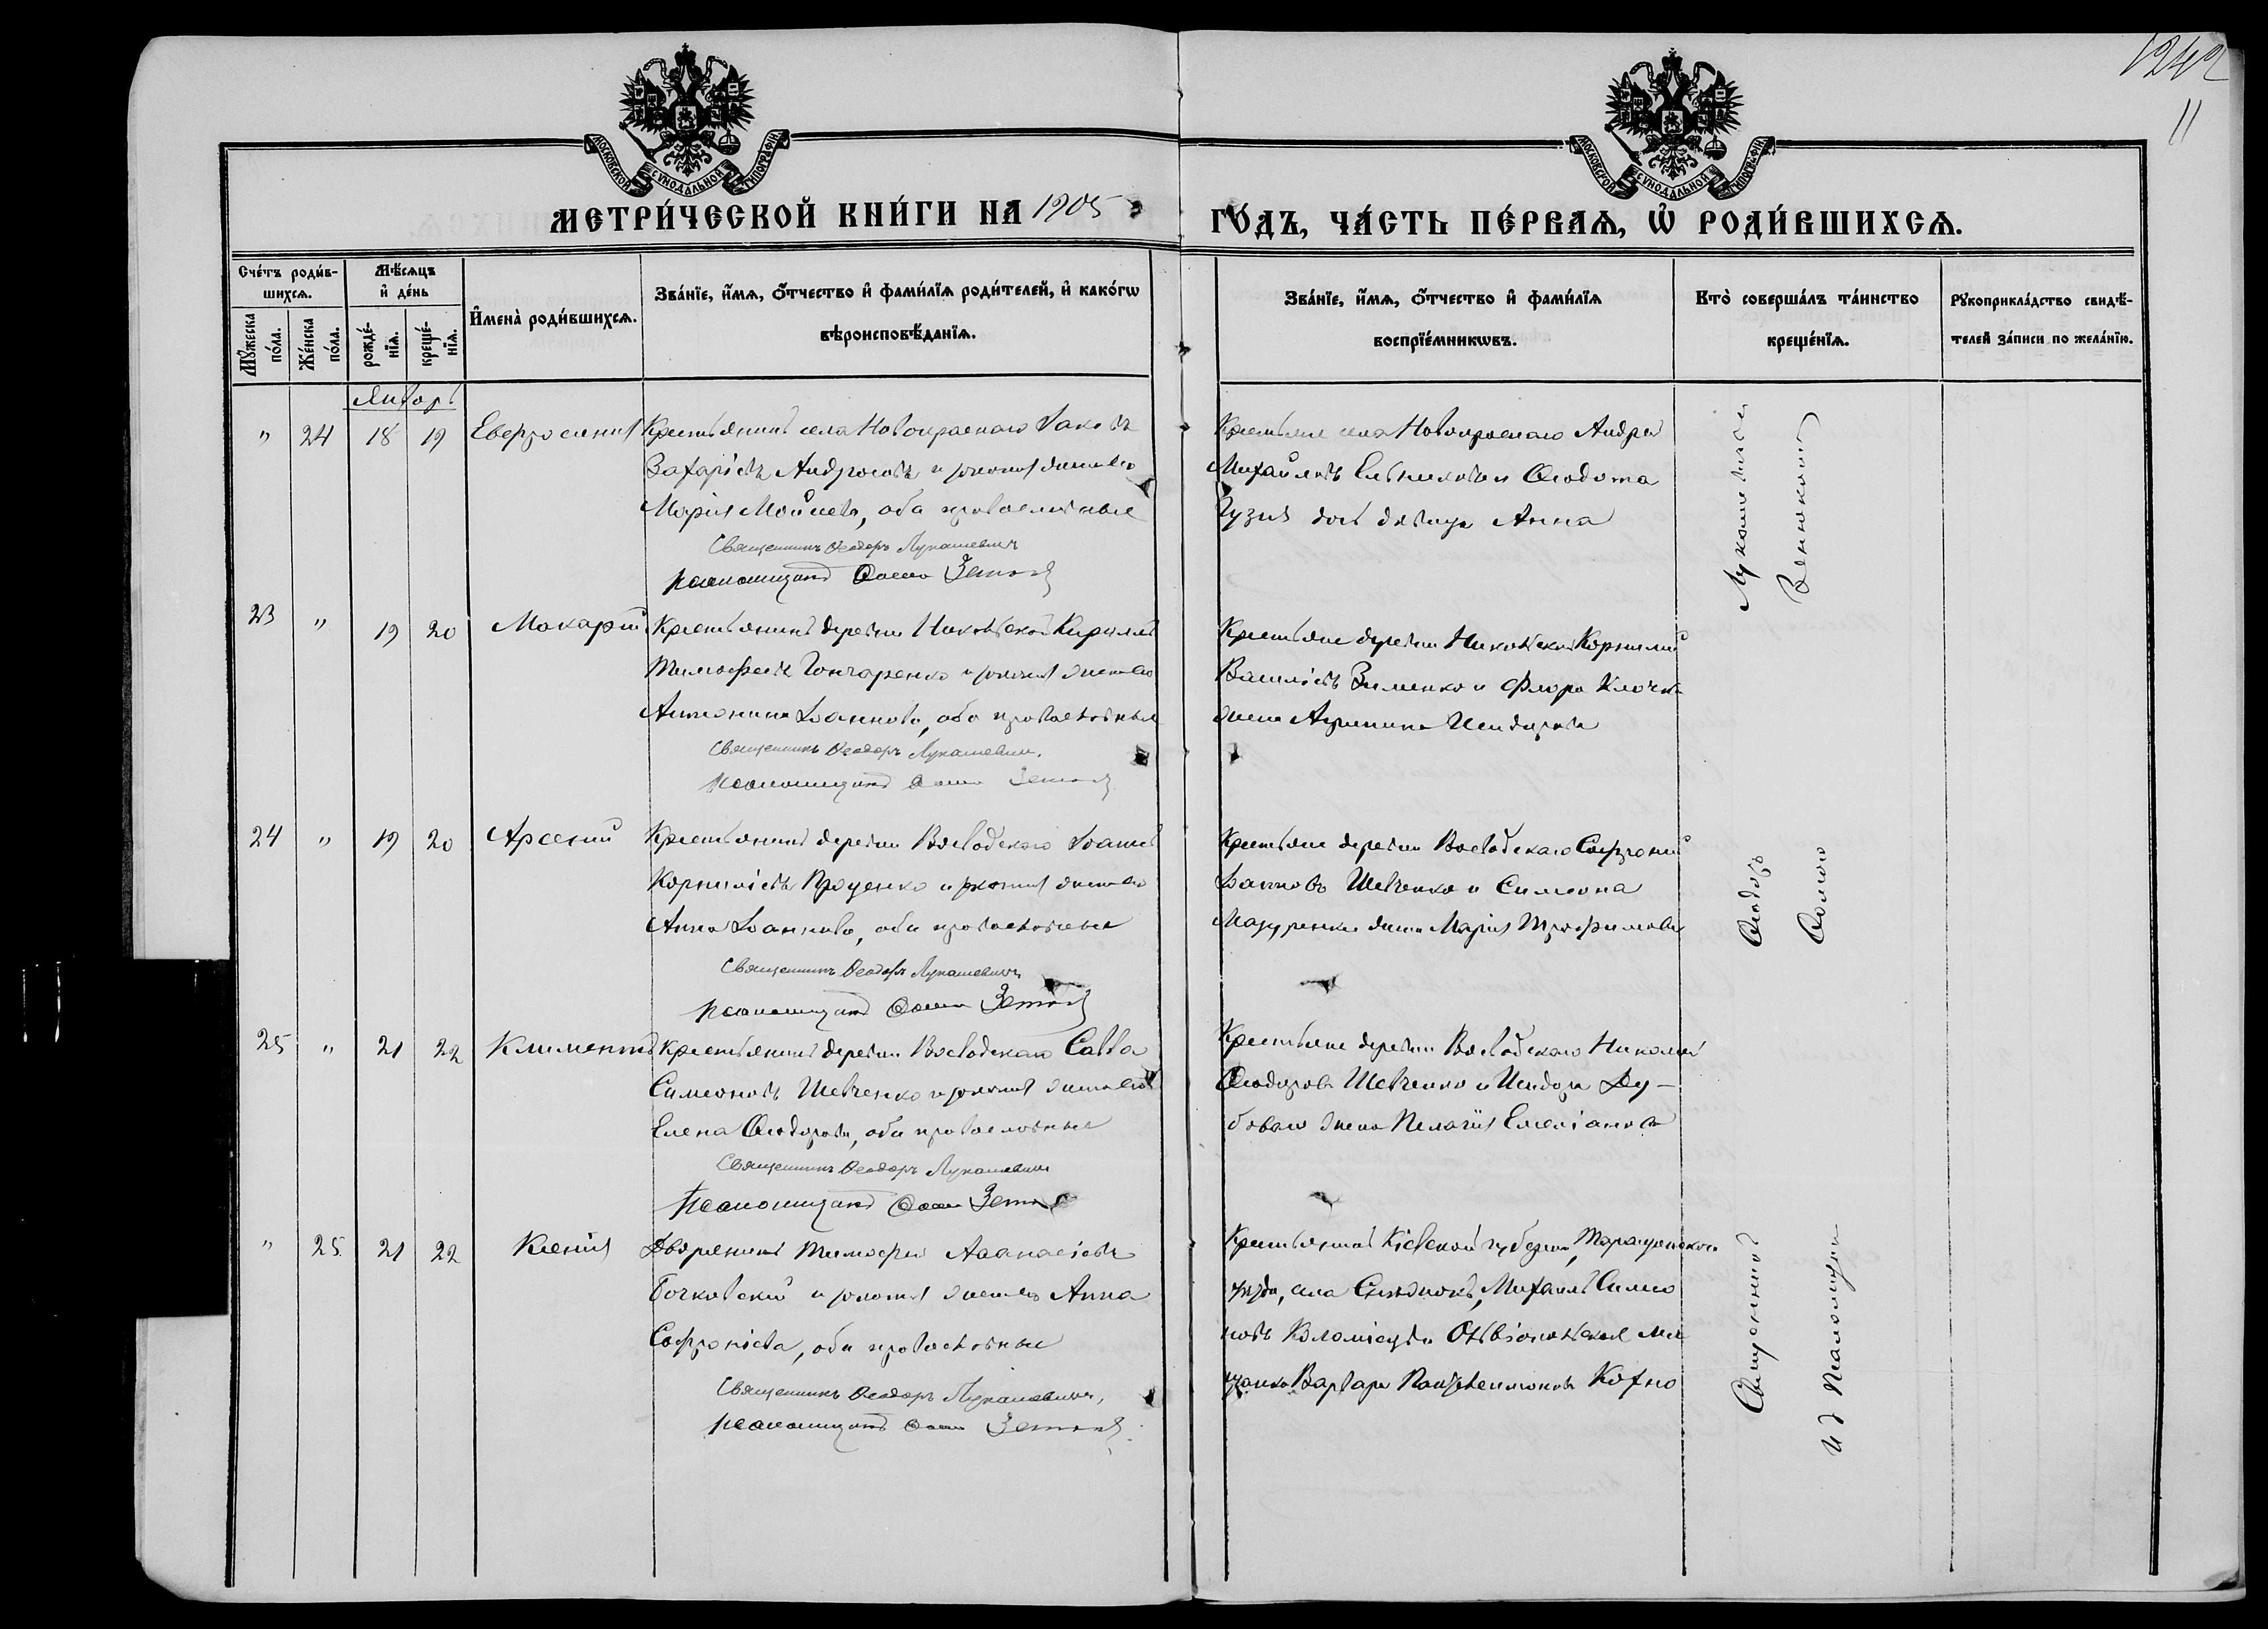 1242
11
МОСКОВСКОЙ СѴНОДАЛЬНОЙ ТИПОГРАФІИ
МОСКОВСКОЙ СѴНОДАЛЬНОЙ ТИПОГРАФІИ
МЕТРИ́ЧЕСКОЙ КНИ́ГИ НА 1905 ГО́ДЪ, ЧА́СТЬ ПЕ́РВАѦ, Ѡ҆ РОДИ́ВШИХСѦ.
Сче́тъ роди́в-
шихсѧ.
Мꙋ́жеска по́ла.
Же́нска по́ла.
Мѣ́сѧцъ
и҆ де́нь
рожде́-
нїѧ.
креще́-
нїѧ.
И҆мена̀ роди́вшихсѧ.
Зва́нїе, и҆́мѧ, ѻ҆́тчество и҆ фами́лїѧ роди́телей, и҆ како́гѡ
вѣроисповѣ́данїѧ.
Зва́нїе, и҆́мѧ, ѻ҆́тчество и҆ фами́лїѧ
воспрїе́мникѡвъ.
Кто̀ соверша́лъ та́инство
креще́нїѧ.
Рꙋкоприкла́дство свидѣ́-
телей за́писи по жела́нїю.
Январь
" 24 18 19 Евфросинія Крестьянинъ села Новокраснаго Іаковъ
Захаріевъ Андросовъ и законная жена его
Марія Моисеева, оба православные
Священникъ Ѳеодоръ Лукашевичъ
Псаломщикъ Ѳома
Крестьяне села Новокраснаго Андрей
Михайловъ и Ѳеодота
дочь дѣвица Анна
23 " 19 20 Макарій Крестьянинъ деревни Кириллъ
Тимофеевъ Гончаренко и законная жена его
Антонина Іоаннова, оба православные
Священникъ Ѳеодоръ Лукашевичъ.
Псаломщикъ Ѳома
Крестьяне деревни Корнилій
Василіевъ Зименко и Флора
жена Исидорова
24 " 19 20 Арсеній Крестьянинъ деревни Воеводскаго Іоаннъ
Корниліевъ Проценко и законная жена его
Анна Іоаннова, оба православные
Священникъ Ѳеодоръ Лукашевичъ
Псаломщикъ Ѳома
Крестьяне деревни Воеводскаго Софроній
Іоанновъ Шевченко и Симеона
Мазуренка жена Марія Трофимова
25 " 21 22 Климентъ Крестьянинъ деревни Воеводскаго Савва
Симеоновъ Шевченко и законная жена его
Елена Ѳеодорова, оба православные
Священникъ Ѳеодоръ Лукашевичъ
Псаломщикъ Ѳома
Крестьяне деревни Воеводскаго Николай
Ѳеодоровъ Шевченко и Исидора Ду-
боваго жена Пелагія Емеліанова
" 25 21 22 Ксенія Дворянинъ Тимофей Аѳанасіевъ
Бочковскій и законная жена его Анна
Софроніева, оба православные
Священникъ Ѳеодоръ Лукашевичъ,
Псаломщикъ Ѳома
Крестьянинъ Кіевской губерніи, Таращанскаго
уѣзда, села Михаилъ Симео
новъ Ольвіопольская мѣ
щанка Варвара Пантелеимонова Кохно
Священникъ Ѳеодоръ
и д Псаломщика Ѳома